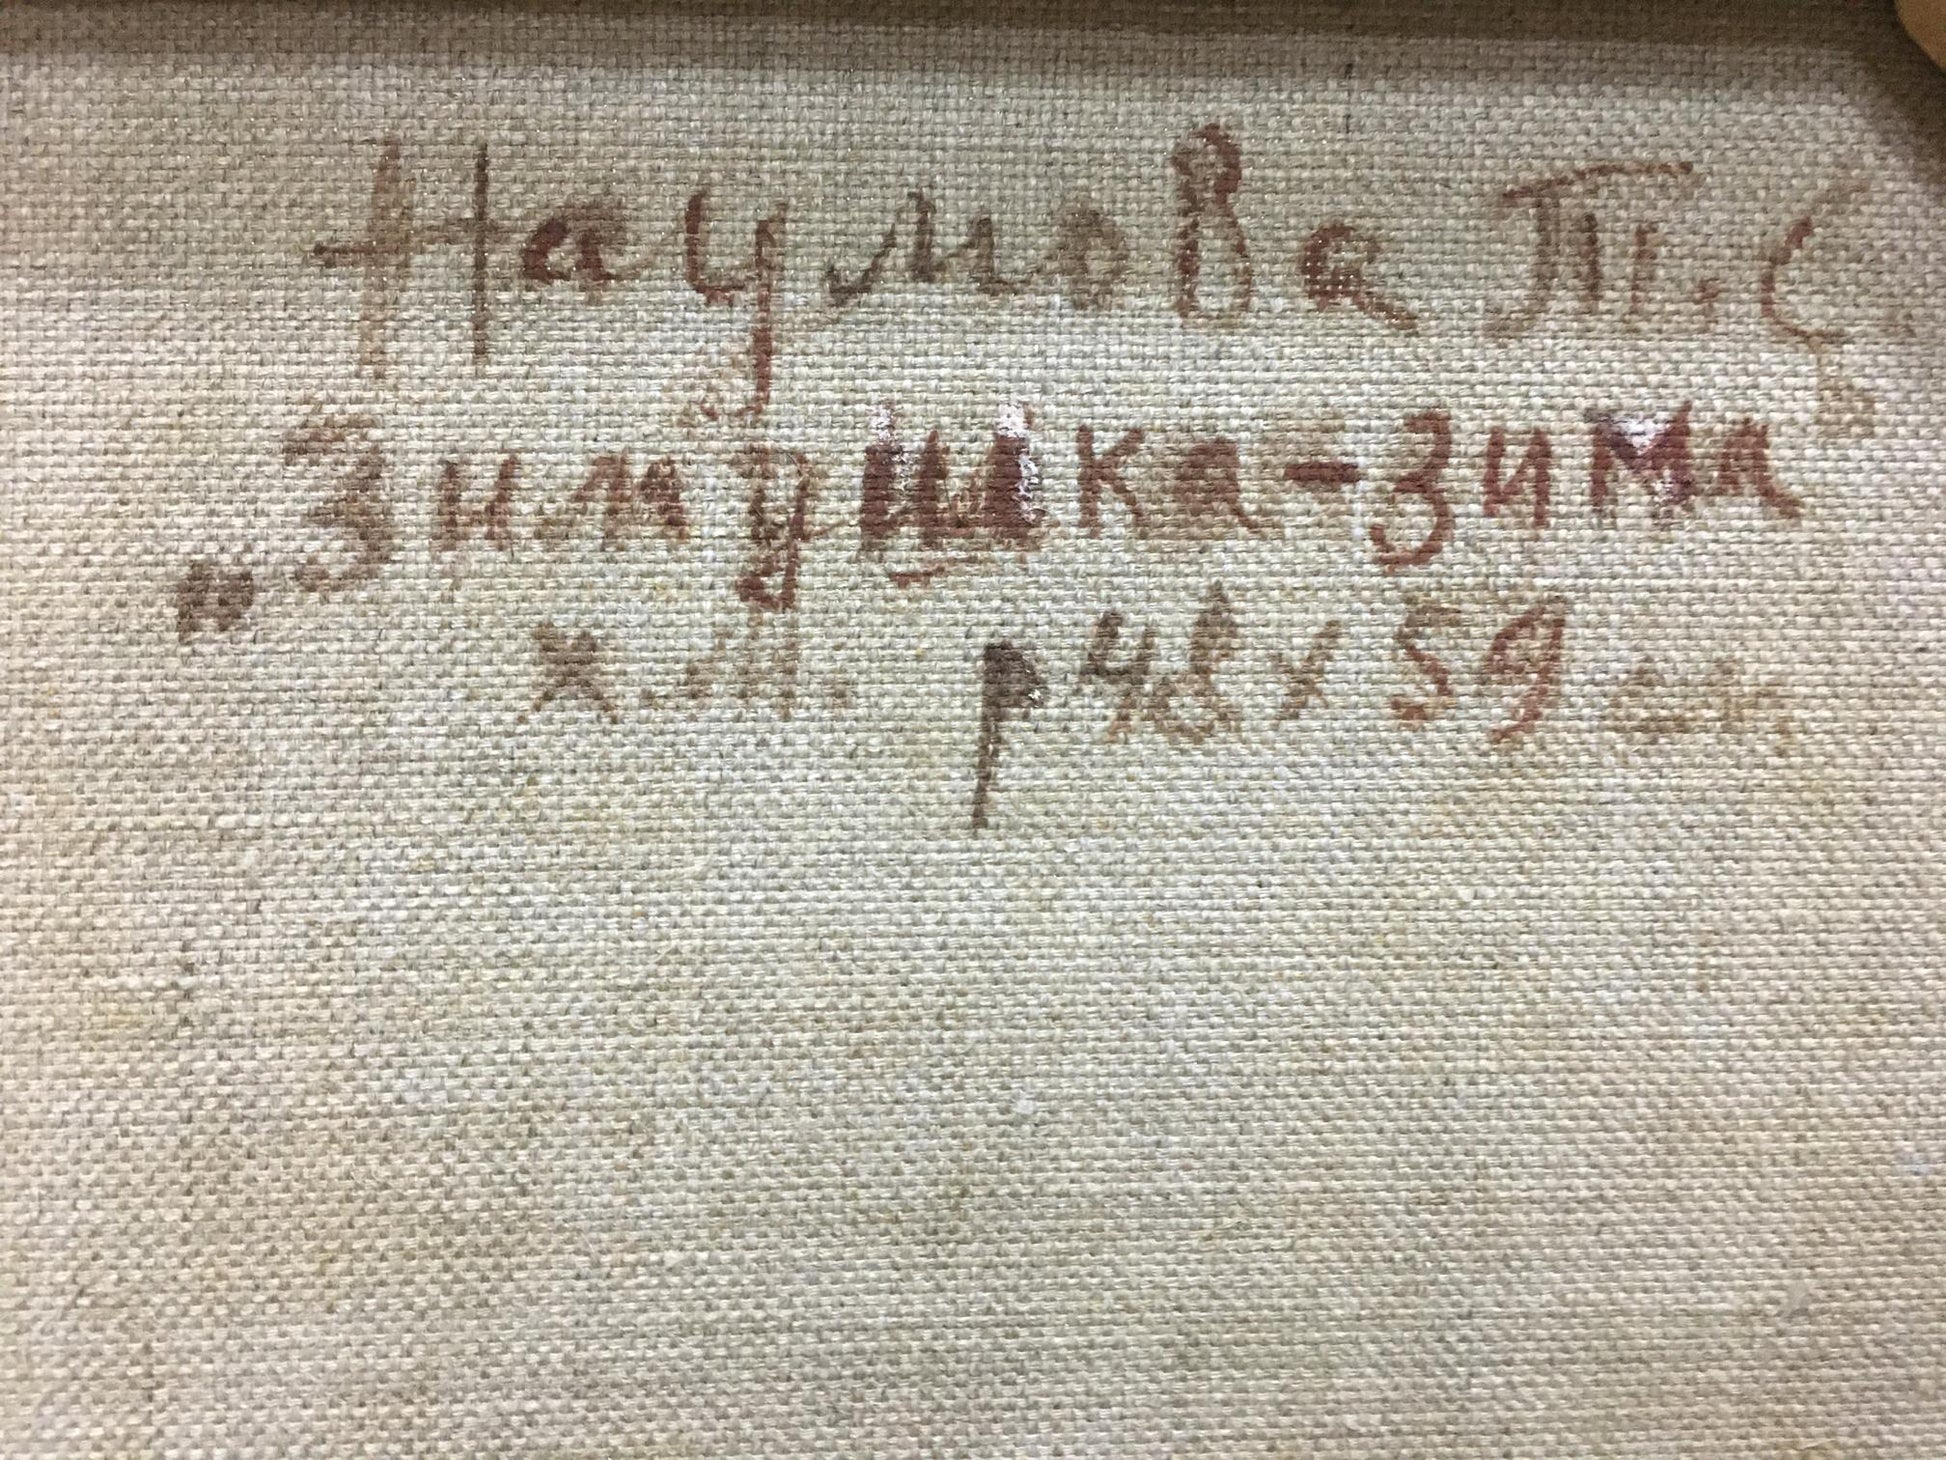 Наумова Т.С
„Зимушка-зима
х.м. р 48х59 см.